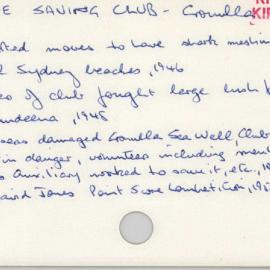 E SAVING CLUB - Cronulla
moves to have shark meshing
Sydney beaches, 1946
of club fought large bush
undeena, 1948
seas damaged Cronulla Sea Wall, Club
in danger, volunteer including
Auxiliary worked to save it, etc.,
Jones Point Score Competition,